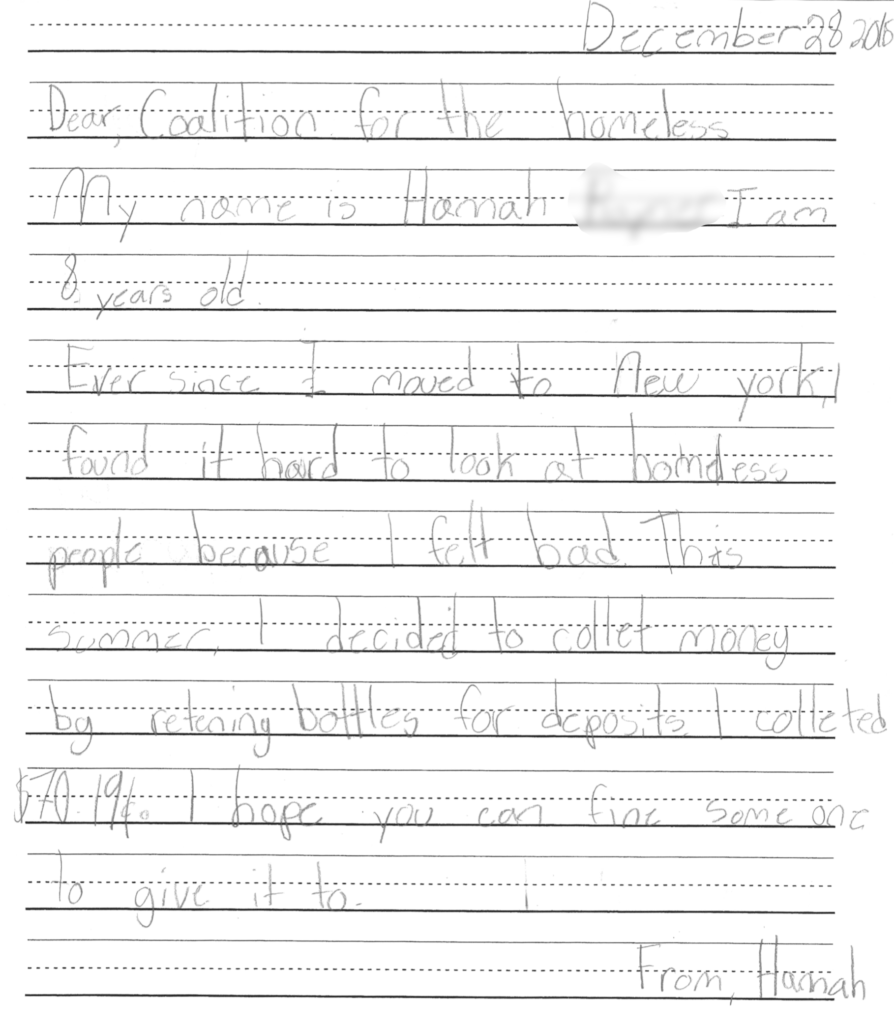 December 28 2016
Dear, Coalition for the homeless
My name is Hannah I am
8 years old.
Ever since I moved to New york, I
found it hard to look at homeless
people because I felt bad. This
summer, I decided to collet money
by retening bottles for deposits. I colleted
$70.19¢. I hope you can fine some one
to give it to.
From, Hannah